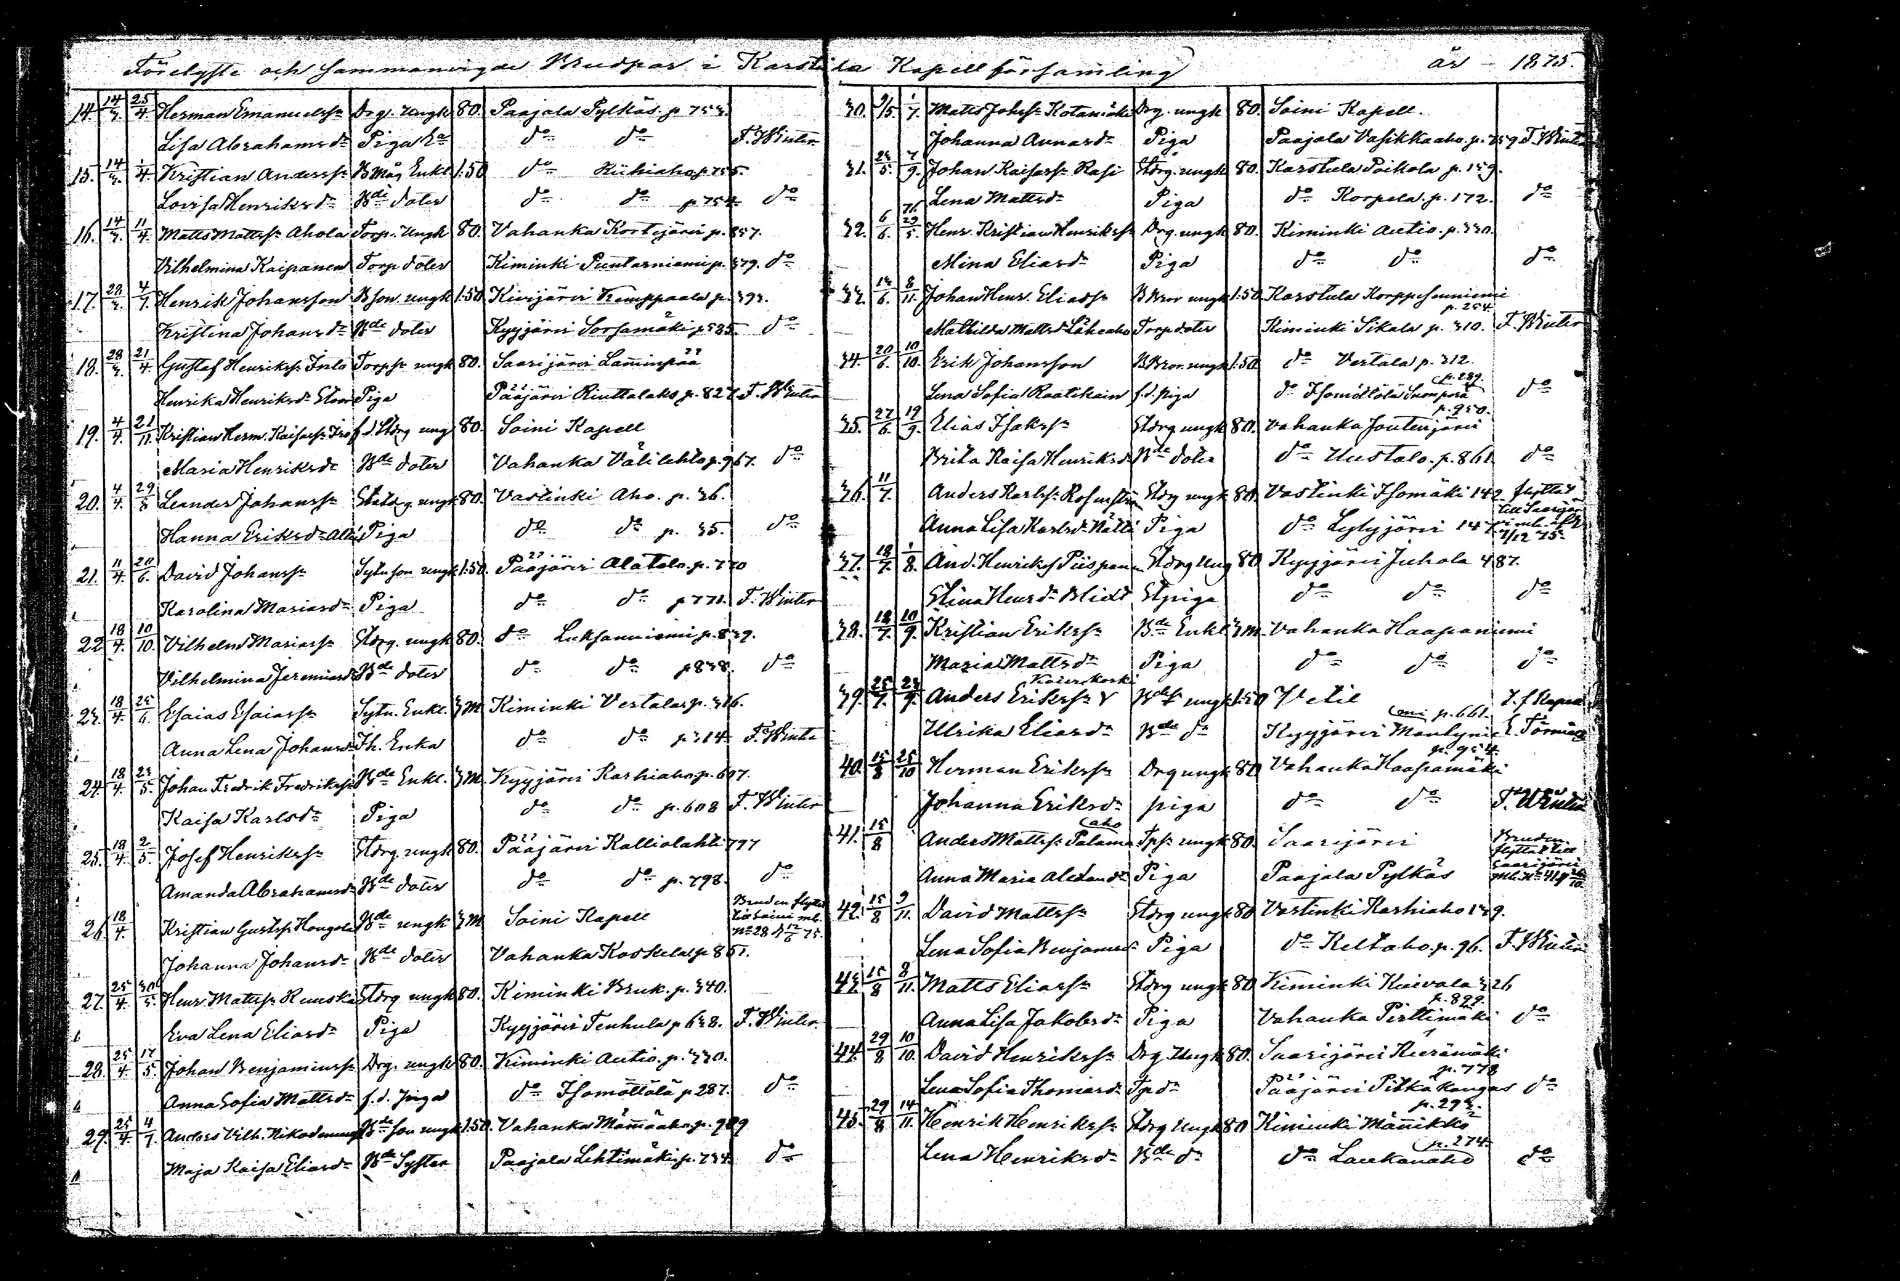 Förelyste och Sammanvigde Brudpar i Karstula Kapellförsamling år 1875.
14. 14/3 25/4 Herman Emanuelss: Drg. Ungk 80. Paajala Pylkäs p. 753
Lisa Abrahamsd:r Piga do do F. Winter
15. 14/3 1/4 Kristian Anderss: Enkl. 1:50 do Riihiaho p. 755.
Lovisa Henriksd:r Bde doter do do p. 754 do
16. 14/3 11/4 Matts Mattss: Ahola Torp. Ungk 80. Vahanka Kortejärvi p. 857.
Vilhelmina Kaipanen Torp doter Kiminki Puntarniemi p. 379. do
17. 28/3 4/7 Henrik Johansson B son. ungk 1:50 Kivijärvi Kemppaala p. 393.
Kristina Johansd:r Bde doter Kyyjärvi Sorsamäki p. 585 do
18. 28/3 21/4 Gustaf Henrikss: Torps: ungk 80. Saarijärvi Lamminpää
Henrika Henriksd:r Piga Pääjärvi Riuttalaks p. 827. F. Winter
19. 4/4 21/11 Kristian Herm. Kaisass: f.d. Stdrg ung 80. Soini Kapell
Maria Henriksd:r Bde doter Vahanka Välilehto p. 967. do
20. 4/4 29/8 Leander Johanss: Stdrg ungk 80. Vastinki Aho. p. 36.
Hanna Eriksd:r Piga do do p. 35. do
21. 11/4 20/6 David Johanss: Sytn son ungk 1:50. Pääjärvi Alatalo p. 770
Karolina Mariasd:r Piga do do p 771. F. Winter
22 18/4 10/10. Vilhelm Mariass: Stdrg. ungk 80. do Luksanniemi p. 839.
Vilhelmina Jeremiasd Bde doter do do p 838. do
23. 18/4 25/6 Esaias Esaiass: Sytn. Enkl. 3 M. Kiminki Vertala p. 316.
Anna Lena Johansd:r Th. Enka do do p. 314 F. Winter
24. 18/4 23/5. Johan Fredrik Fredrikss: Bde Enkl. 3 M. Kyyjärvi Karhiaho p. 607.
Kaisa Karlsd:r Piga do do p. 608 F. Winter
25. 18/4 2/5. Josef Henrikss: Stdrg. ungk 80. Pääjärvi Kalliolahti 797
Amanda Abrahamsd Bde doter do do p. 798. do
26. 18/4. Kristian Gustss: Bde ungk 3 M Soini Kapell Bruden flyttat till Soini mb. No 28 d. 12/6 75.
Johanna Johansd:r Bde doter Vahanka Koskela p. 861.
27. 25/4 30/5 Henr. Mattss: Ruuska Stdrg ungk 80. Kiminki Bruk. p. 340.
Eva Lena Eliasd:r Piga Kyyjärvi Tenhula p 638. F. Winter.
28. 25/4. 17/5. Johan Benjaminss: Drg. ungk 80. Kiminki Autio p. 330.
Anna Sofia Mattsd:r f.d. Piga do Isomöttölä p 287. do
29. 25/4 4/7. Anders Vilh. Nikodemuss Bde son ungk 1:50. Vahanka p. 989
Maja Kaisa Eliasd:r Bde Syster Paajala Lehtimäki p. 734. do
30. 9/5. 1/7. Matts Johss: Kotamäki Drg. ungk 80. Soini Kapell.
Johanna Annasd:r Piga Paajala Vasikkaaho p. 759 F. Winter
31. 23/5. 7/9. Johan Kaisass: Rasi Stdrg. ungk 80. Karstula Poikola p. 159.
Lena Mattsd:r Piga do Korpela p. 172. do
32. 6/6. 76 29/5. Henr. Kristian Henrikss: Drg. ungk 80. Kiminki Autio. p. 330.
Mina Eliasd:r Piga do do do
33. 13/6. 8/11. Johan Henr. Eliass: B Bror ungk 1:50. Karstula Korppisenniemi p. 254
Mathilda Mattsd Läheaho Torp doter Kiminki Sikala p. 310. F. Winter
34. 20/6. 10/10. Erik Johansson B Bror. ungk 1:50 do Vertala p. 312.
Lena Sofia Raatikain f.d. piga do Isomöttölä p. 289. do
35. 27/6. 19/9. Elias Isakss: Stdrg ungk 80. Vahanka Joutenjärvi p. 950.
Brita Kaisa Henriksd Bde doter do Uustalo. p. 861 do
36. 11/7. Anders Karlss: Rosenström Stdrg ungk 80. Vastinki Isomäki 142 flyttat till Saarijärvi 7/12 75.
Anna Lisa Karlsd: Piga do Lylyjärvi 147
37. 18/7. 1/8. And. Henrikss Piispanen Stdrg Ung 80 Kyyjärvi Juhola 487.
Stina Henrsd: Blidt Stpiga do do do
38. 18/7. 10/9. Kristian Erikss: Bde Enkl. 3 M. Vahanka Haapaniemi
Maria Mattsd:r Piga do do do
39. 25/7. 23/9. Anders Erikss: Bds: ungk 1:50 Vetil
Ulrika Eliasd:r Bde do Kyyjärvi p. 661. E. Törmälä
40. 15/8 25/10 Herman Erikss: Drg ungk 80 Vahanka Haapamäki p. 954
Johanna Eriksd:r piga do do F. Winter
41. 15/8 Anders Mattss: Palamaaho Tps: ungk 80. Saarijärvi Bruden flyttat till Saarijärvi
Anna Maria Alexand: Piga Paajala Pylkäs
42. 15/8 9/11. David Mattss: Stdrg ungk 80 Vastinki Karhiaho 139.
Lena Sofia Benjamsd:r Piga do Keltaho. p. 96. F. Winter
43. 15/8 8/11. Matts Eliass: Stdrg ungk 80 Kiminki Kaivola 326
Anna Lisa Jakobsd:r Piga Vahanka Pirttimäki p. 899. do
44. 29/8 10/10. David Henrikss: Drg. Ungk 80. Saarijärvi
Lena Sofia Thomasd: Tpd:r Pääjärvi Pitkäkangas p. 778 do
45. 29/8 14/11. Henrik Henrikss: Stdrg Ungk 80 Kiminki Männikkö p. 293.
Lena Henriksd:r Bde do do p. 274 do